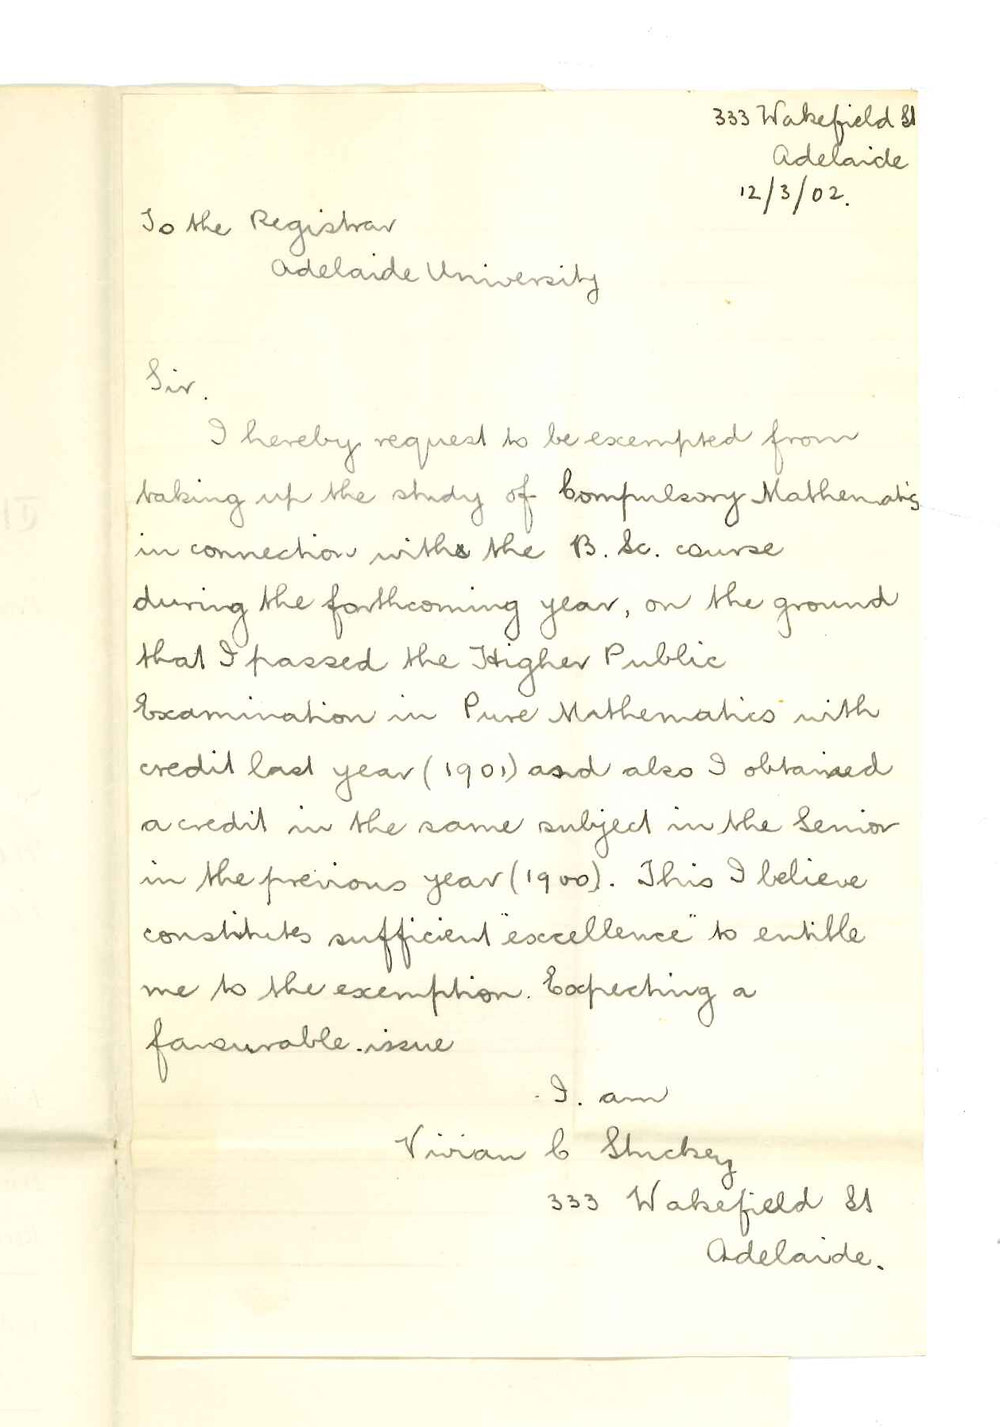 333 Wakefield St
Adelaide
12/3/02.
To the Registrar
Adelaide University
Sir.
I hereby request to be exempted from
taking up the study of Compulsory Mathematics
in connection with the B. Sc. course
during the forthcoming year, on the ground
that I passed the Higher Public
Examination in Pure Mathematics with
credit last year (1901) and also I obtained
a credit in the same subject in the Senior
in the previous year (1900). This I believe
constitutes sufficient "excellence" to entitle
me to the exemption. Expecting a
favourable issue
I. am
Vivian C Stuckey
333 Wakefield St
Adelaide.